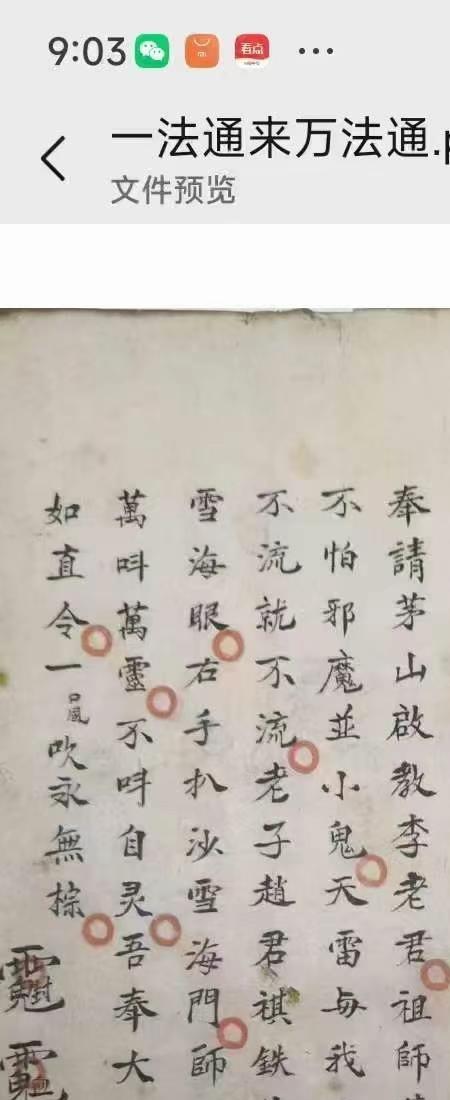 9:03
看点
一法通来万法通.
文件预览
奉請茅山啟教李老君祖師
不怕邪魔並小鬼天雷与我
不流就不流老子趙君祺鉄
雪海眼右手扒沙雪海門師
萬呌萬靈不呌自灵吾奉大
如直令一口風吹永無棕